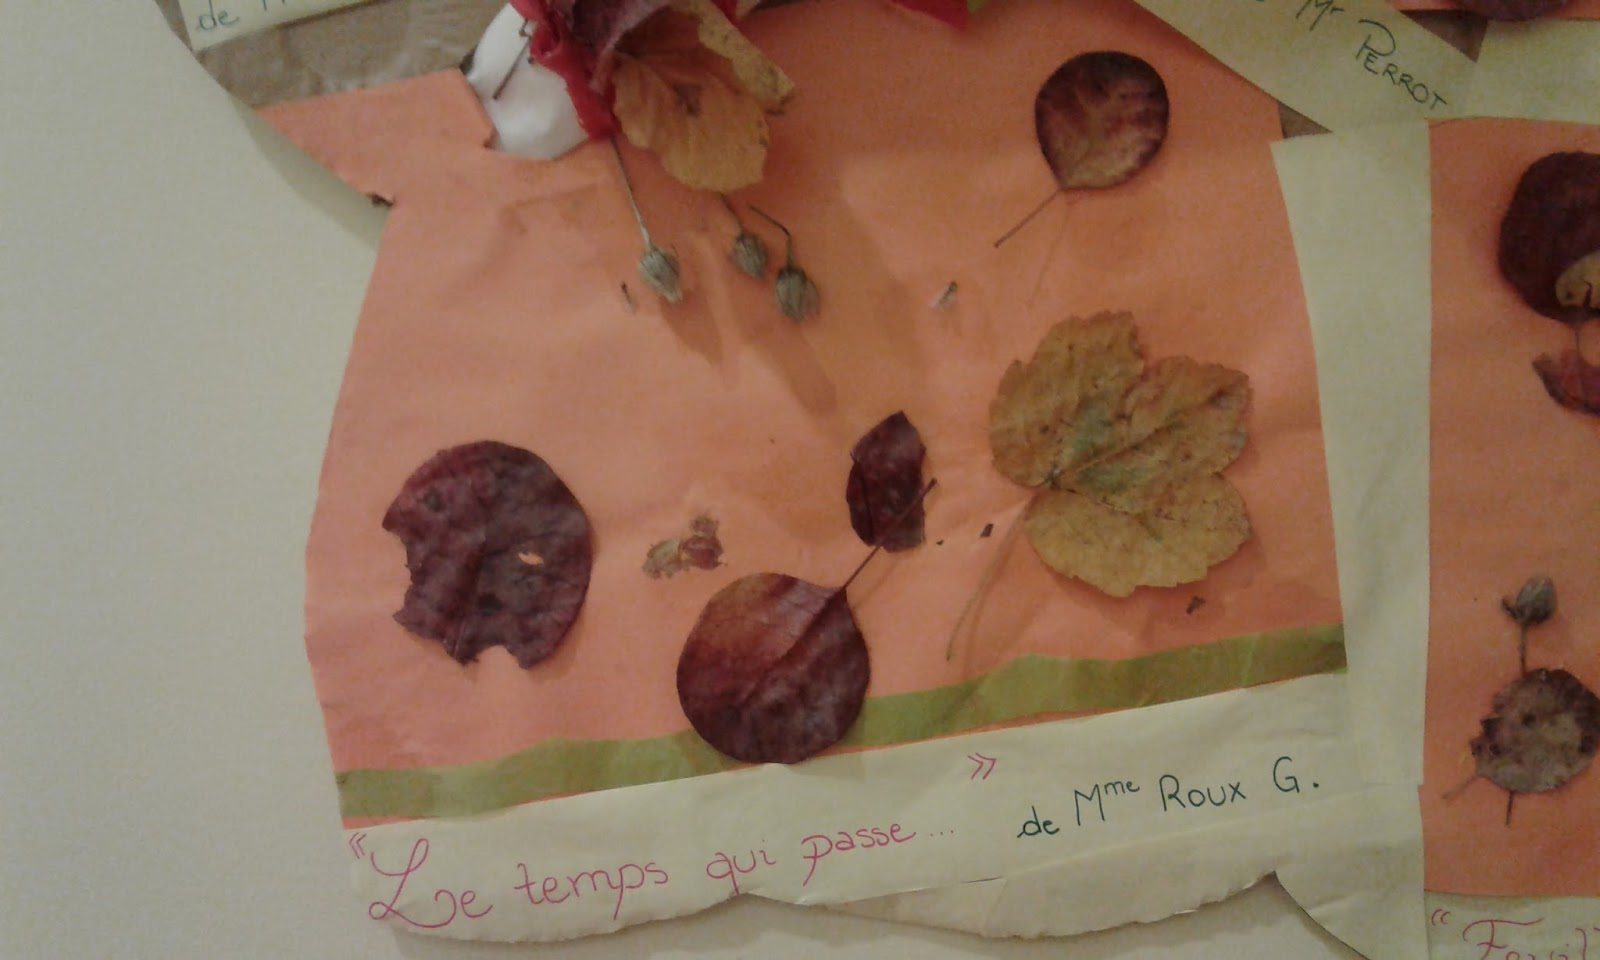 de
Mr PERROT
« Le temps qui passe... » de Mme Roux G.
«